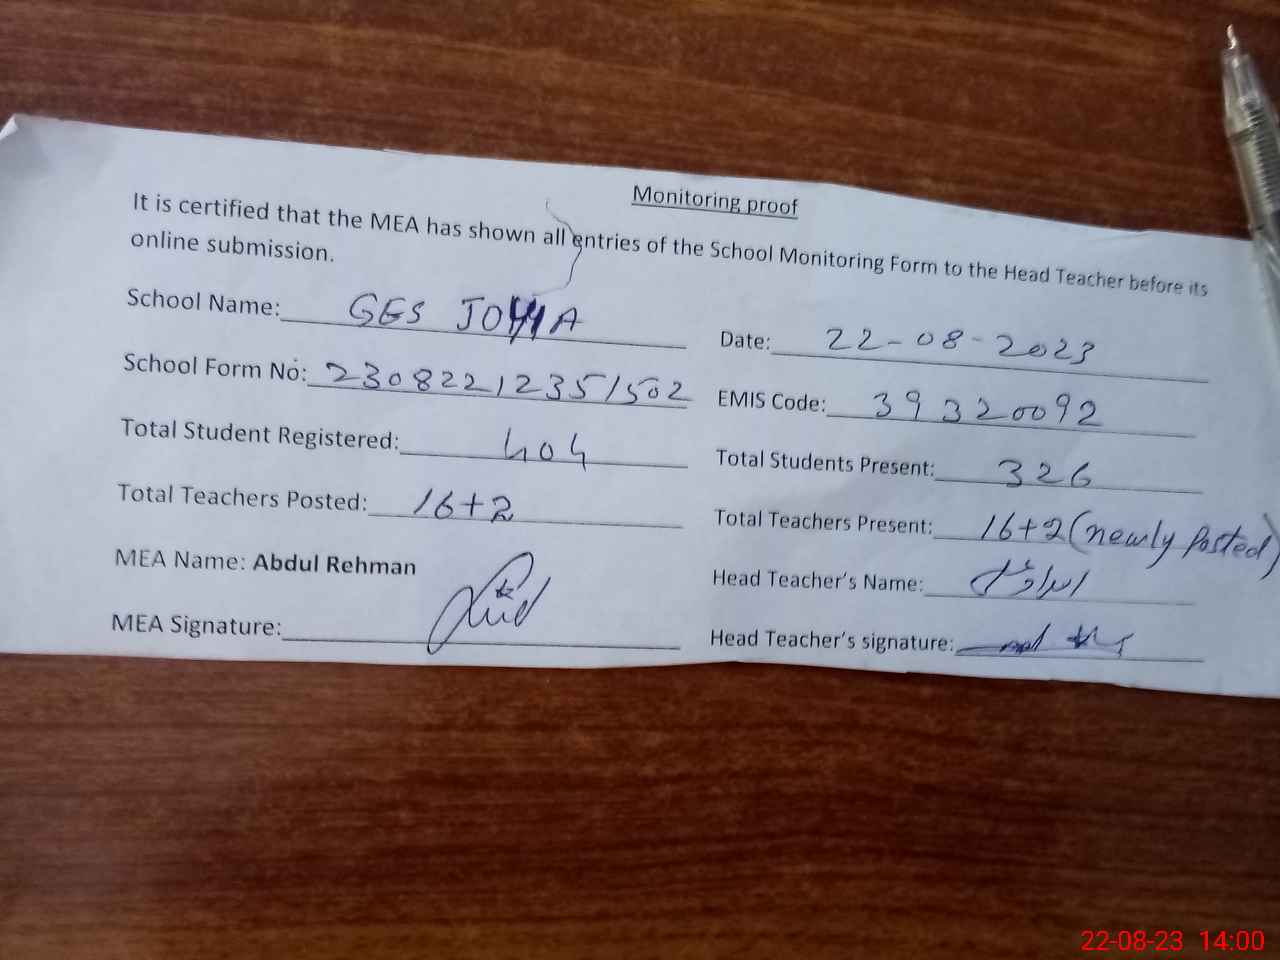 Monitoring proof
It is certified that the MEA has shown all entries of the School Monitoring Form to the Head Teacher before its
online submission.
School Name: GES
Date: 22-08-2023
School Form No: 23082212351502
EMIS Code: 39320092
Total Student Registered: 404
Total Students Present: 326
Total Teachers Posted: 16+2
Total Teachers Present: 16+2 (newly Posted)
MEA Name: Abdul Rehman
Head Teacher's Name:
MEA Signature:
Head Teacher's signature:
22-08-23 14:00